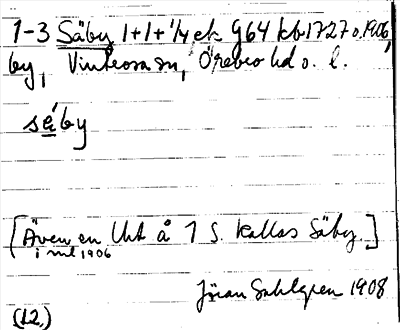 1-3 Säby 1+1+1/4 ek G64 kb 1727 o. 1906,
by, Vintrosa sn, Örebro hd o. l.
säby
[Även en Uht å 1 S. kallas Säby.]
i ml 1906
Jöran Sahlgren 1908
(12)